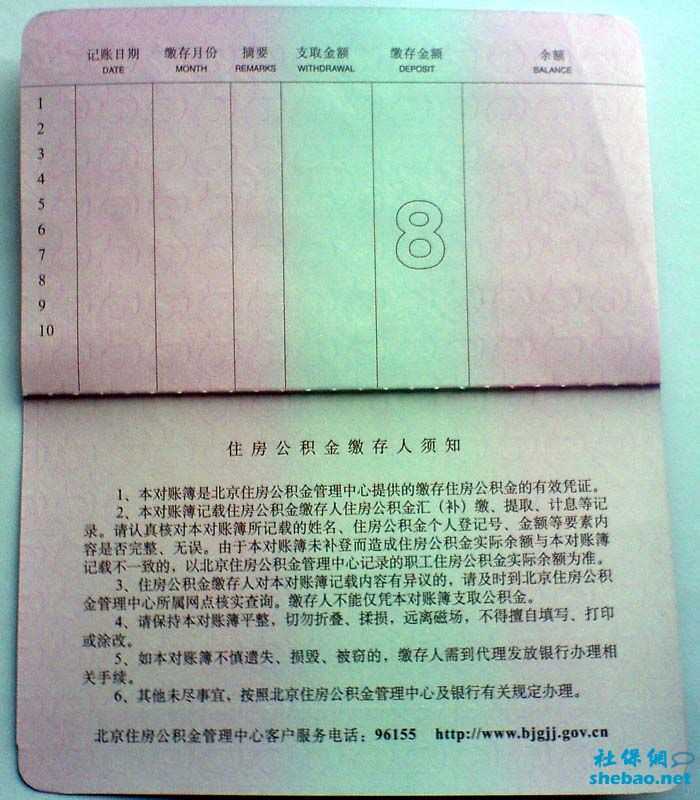 记账日期 缴存月份 摘要 支取金额 缴存金额 余额
DATE MONTH REMARKS WITHDRAWAL DEPOSIT BALANCE
1
2
3
4
5
6
7
8
9
10
8
住房公积金缴存人须知
1、本对账簿是北京住房公积金管理中心提供的缴存住房公积金的有效凭证。
2、本对账簿记载住房公积金缴存人住房公积金汇（补）缴、提取、计息等记
录。请认真核对本对账簿所记载的姓名、住房公积金个人登记号、金额等要素内
容是否完整、无误。由于本对账簿未补登而造成住房公积金实际余额与本对账簿
记载不一致的，以北京住房公积金管理中心记录的职工住房公积金实际余额为准。
3、住房公积金缴存人对本对账簿记载内容有异议的，请及时到北京住房公积
金管理中心所属网点核实查询。缴存人不能仅凭本对账簿支取公积金。
4、请保持本对账簿平整，切勿折叠、揉损，远离磁场，不得擅自填写、打印
或涂改。
5、如本对账簿不慎遗失、损毁、被窃的，缴存人需到代理发放银行办理相
关手续。
6、其他未尽事宜、按照北京住房公积金管理中心及银行有关规定办理。
北京住房公积金管理中心客户服务电话：96155 http://www.bjgjj.gov.cn
社保網
shebao.net